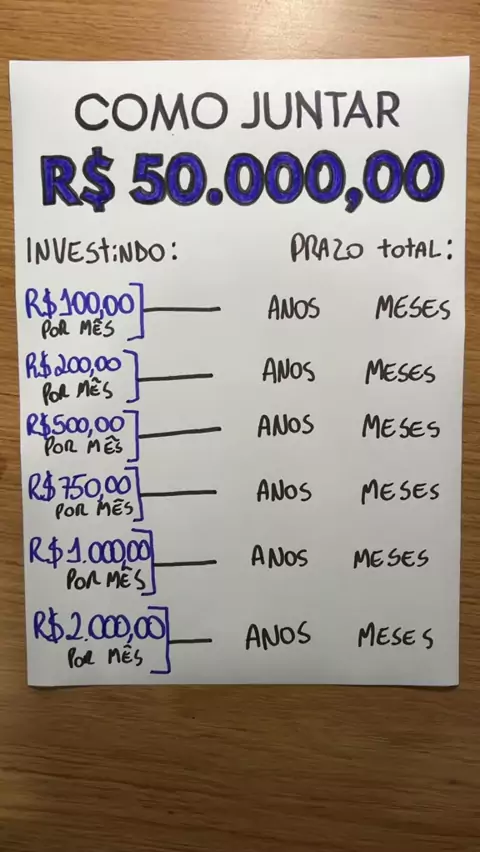 COMO JUNTAR
R$ 50.000,00
INVESTiNDO: PRAZO totAL:
R$100,00 ANOS MESES
POR MÊS
R$200,00 ANOS MESES
POR MÊS
R$500,00 ANOS MESES
POR MÊS
R$750,00 ANOS MESES
POR MÊS
R$1.000,00 ANOS MESES
POR MÊS
R$2.000,00 ANOS MESES
POR MÊS